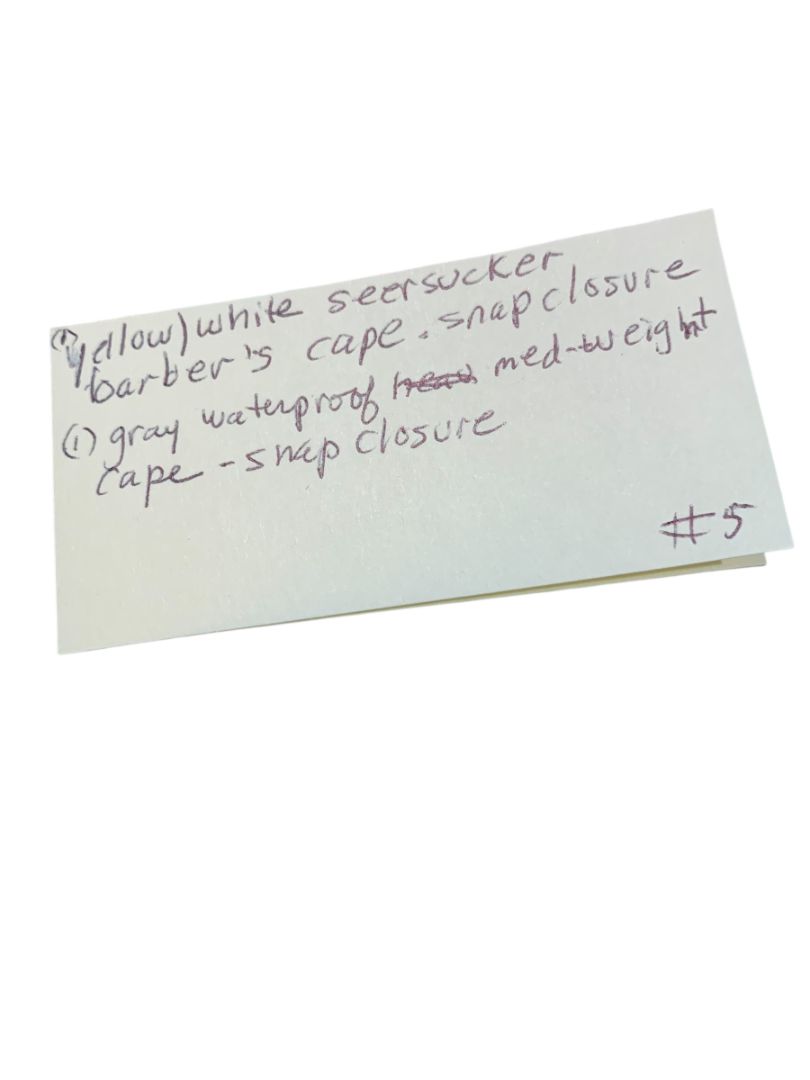 (1) yellow/white seersucker
barber's cape. snap closure
(1) gray waterproof med-weight
cape - snap closure
#5